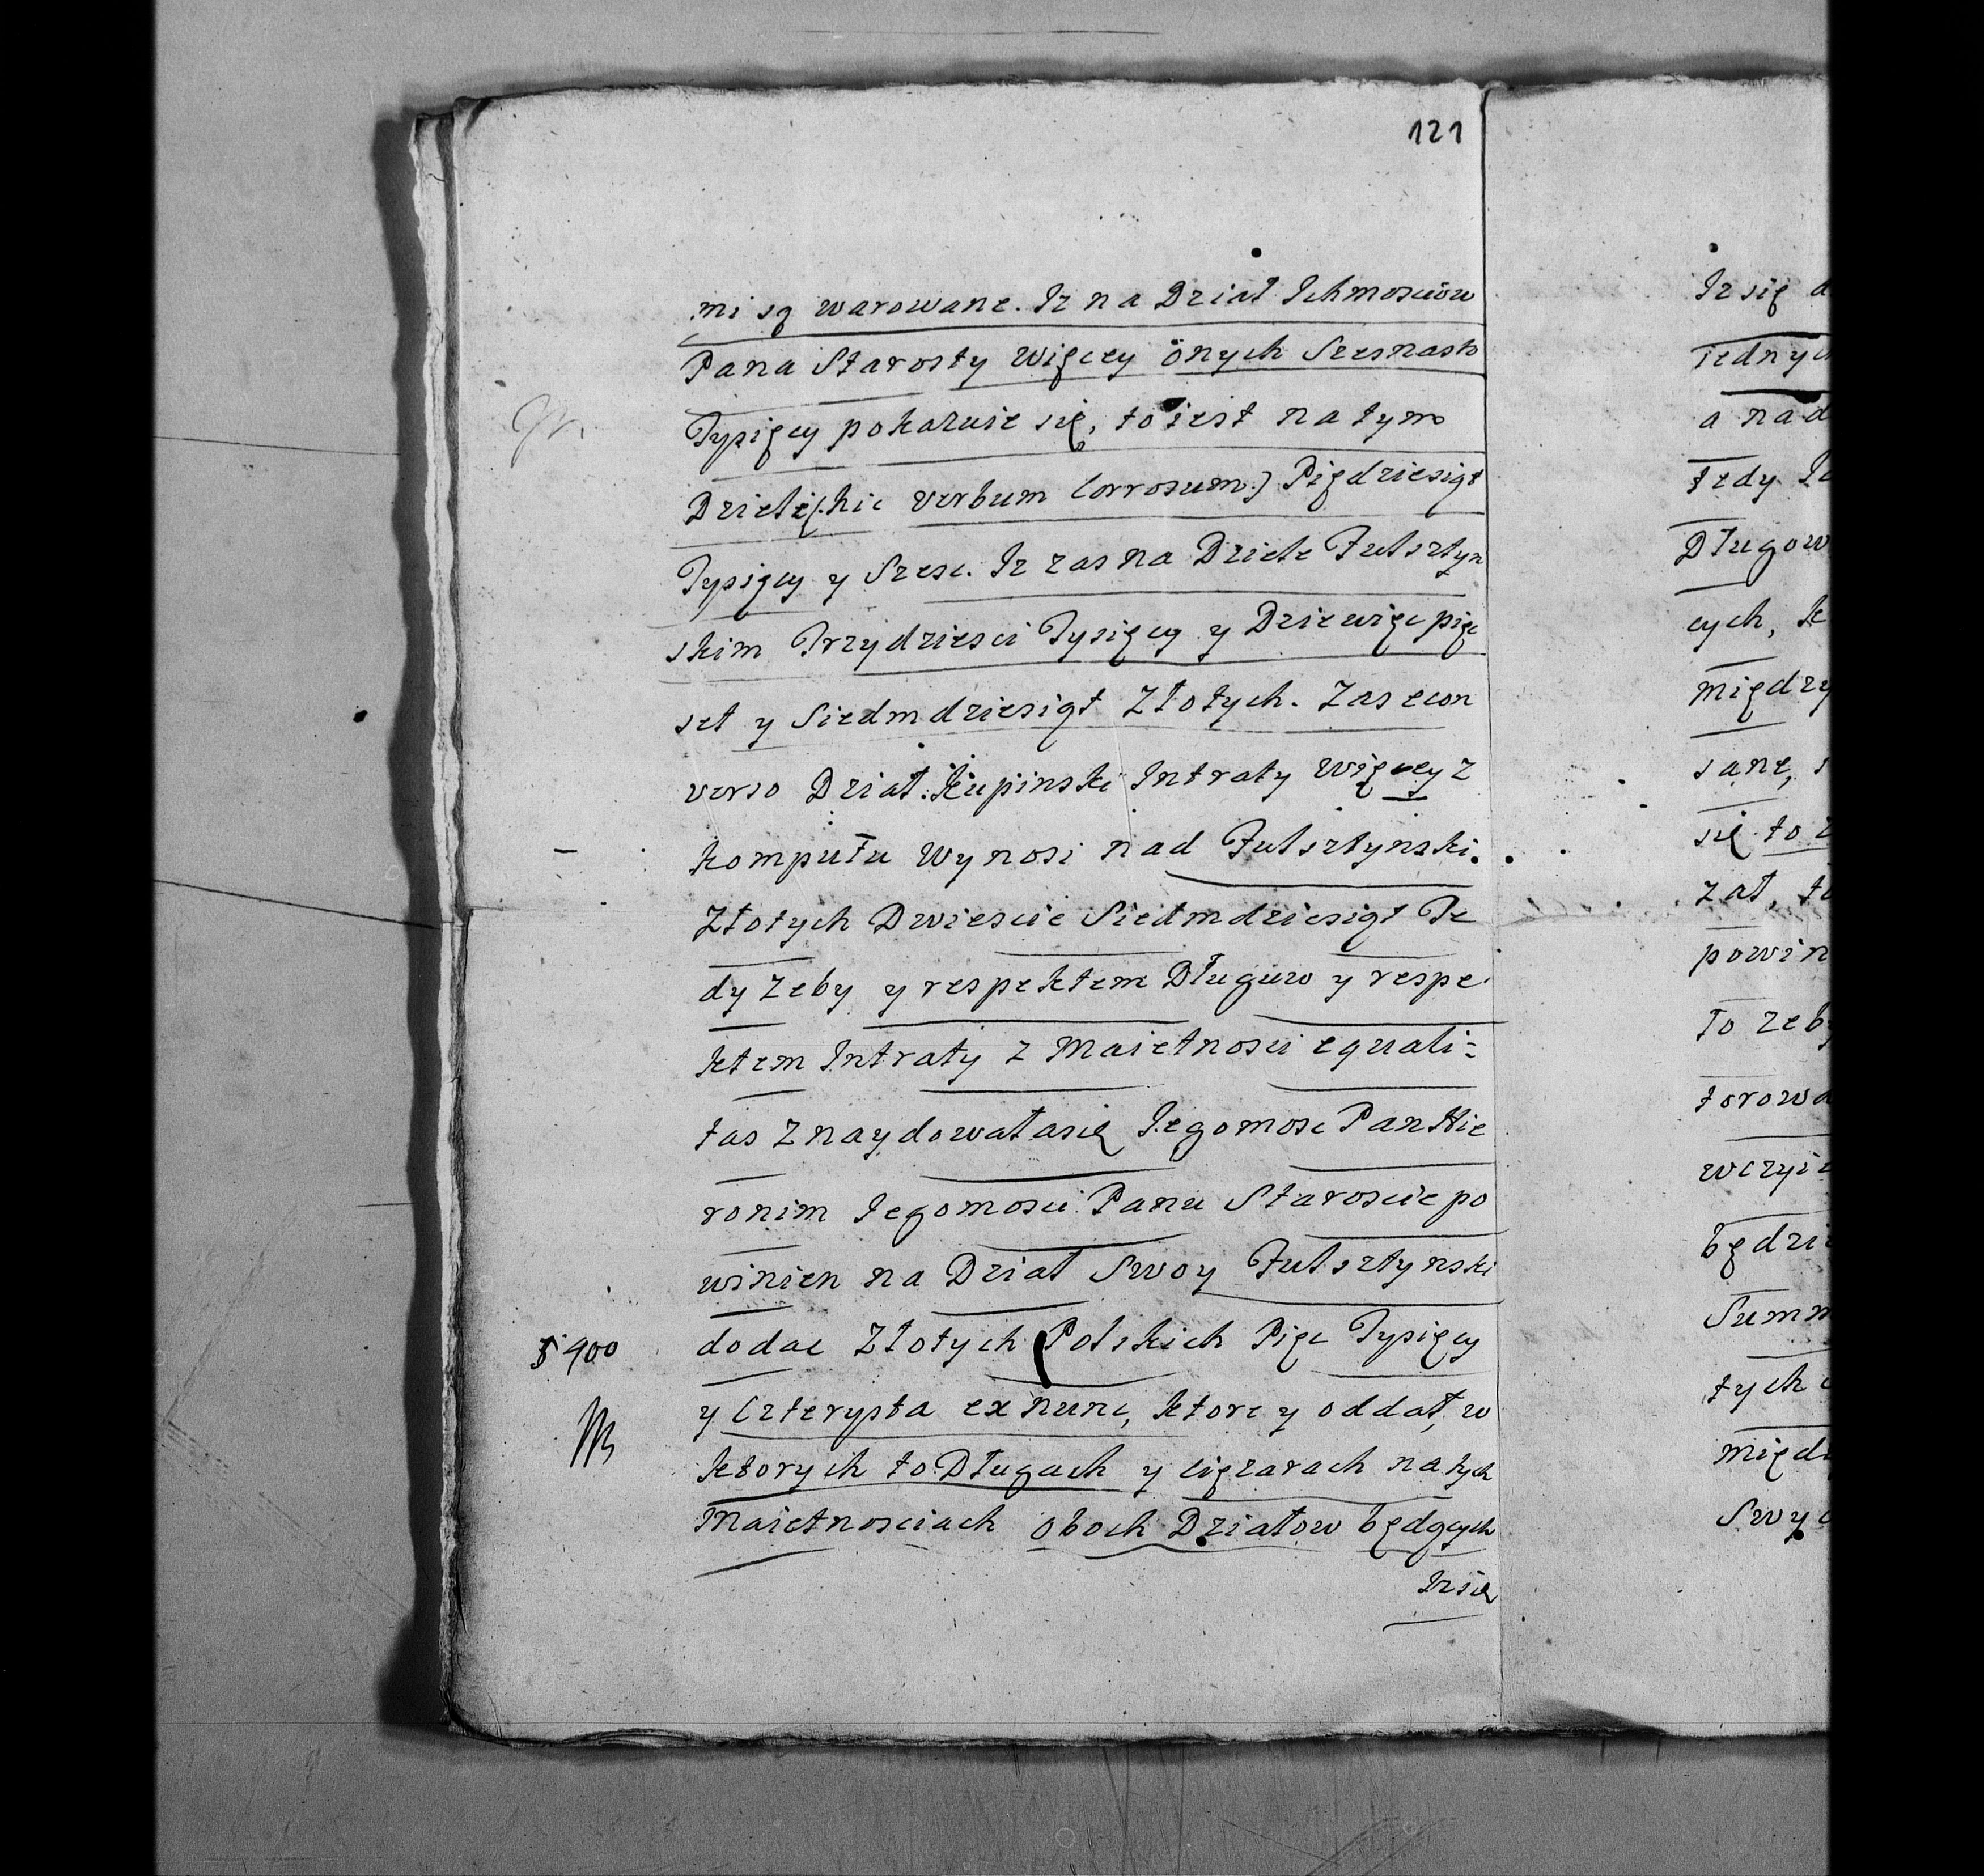 121
mi są warowane. Iz na Dział Ichmosciów
Pana Starosty Więcey onych Szesnasto
Tysięcy pokazuie się, to iest na tym
Dziele (hic verbum corrosum) Piędziesiąt
Tysięcy y Szesc. Iz zas na Dziele Fulsztyn
skim Trzydziesci Tysięcy y Dziewięc pięc
set y Siedmdziesiąt Złotych. Zas econ
verso Dział Kupinski Intraty Więcey z
komputu Wynosi nad Fulsztynski.
Złotych Dwiescie Siedmdziesiąt Te
dy Zeby y respektem Długuw y respe
ktem Intraty z Maietnosci equali=
tas Znaydowała się Iegomosc Pan Hie
ronim Iegomosci Panu Staroscie po
winien na Dział Swoy Fulsztynski
5400 dodac Złotych Polskich Pięc Tysięcy
y Czterysta ex nunc, ktore y oddał, w
ktorych to Długach y cięzarach na tych
Maietnosciach oboch Działow będących
Iz się
Iz się
iednych
a nad
tedy
Długow
cych, k
między
sane, s
się to
zał, to
powin
to zeb
torowa
wczyi
będzi
Summ
tych
międ
Swy